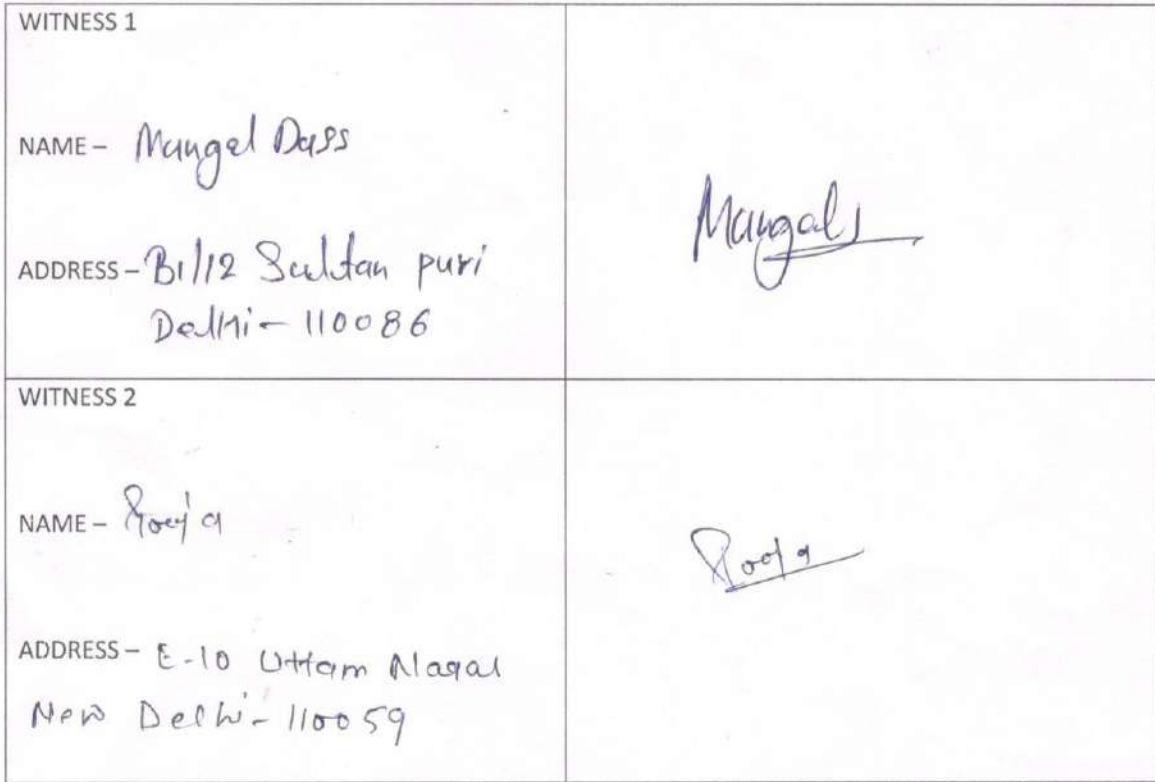 WITNESS 1
NAME – Mangal Dass
Mangal
ADDRESS – B1/12 Sultan puri
Delhi – 110086
WITNESS 2
NAME – Pooja
Pooja
ADDRESS – E-10 Uttam Nagar
New Delhi – 110059